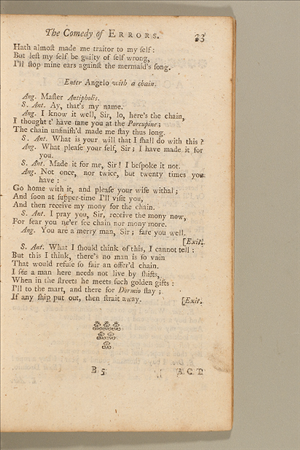 The Comedy of ERRORS. 33
Hath almost made me traitor to my self:
But lest my self be guilty of self wrong,
I'll stop mine ears against the mermaid's song.
Enter Angelo with a chain.
Ang. Master Antipholis.
S. Ant. Ay, that's my name.
Ang. I know it well, Sir, lo, here's the chain,
I thought t' have tane you at the Porcupine;
The chain unfinish'd made me stay thus long.
S. Ant. What is your will that I shall do with this?
Ang. What please your self, Sir; I have made it for
you.
S. Ant. Made it for me, Sir! I bespoke it not.
Ang. Not once, nor twice, but twenty times you
have:
Go home with it, and please your wife withal;
And soon at supper-time I'll visit you,
And then receive my mony for the chain.
S. Ant. I pray you, Sir, receive the mony now,
For fear you ne'er see chain nor mony more.
Ang. You are a merry man, Sir; fare you well.
[Exit.
S. Ant. What I should think of this, I cannot tell:
But this I think, there's no man is so vain
That would refuse so fair an offer'd chain.
I see a man here needs not live by shifts,
When in the streets he meets such golden gifts:
I'll to the mart, and there for Dormio stay;
If any ship put out, then strait away. [Exit.
B 5 ACT